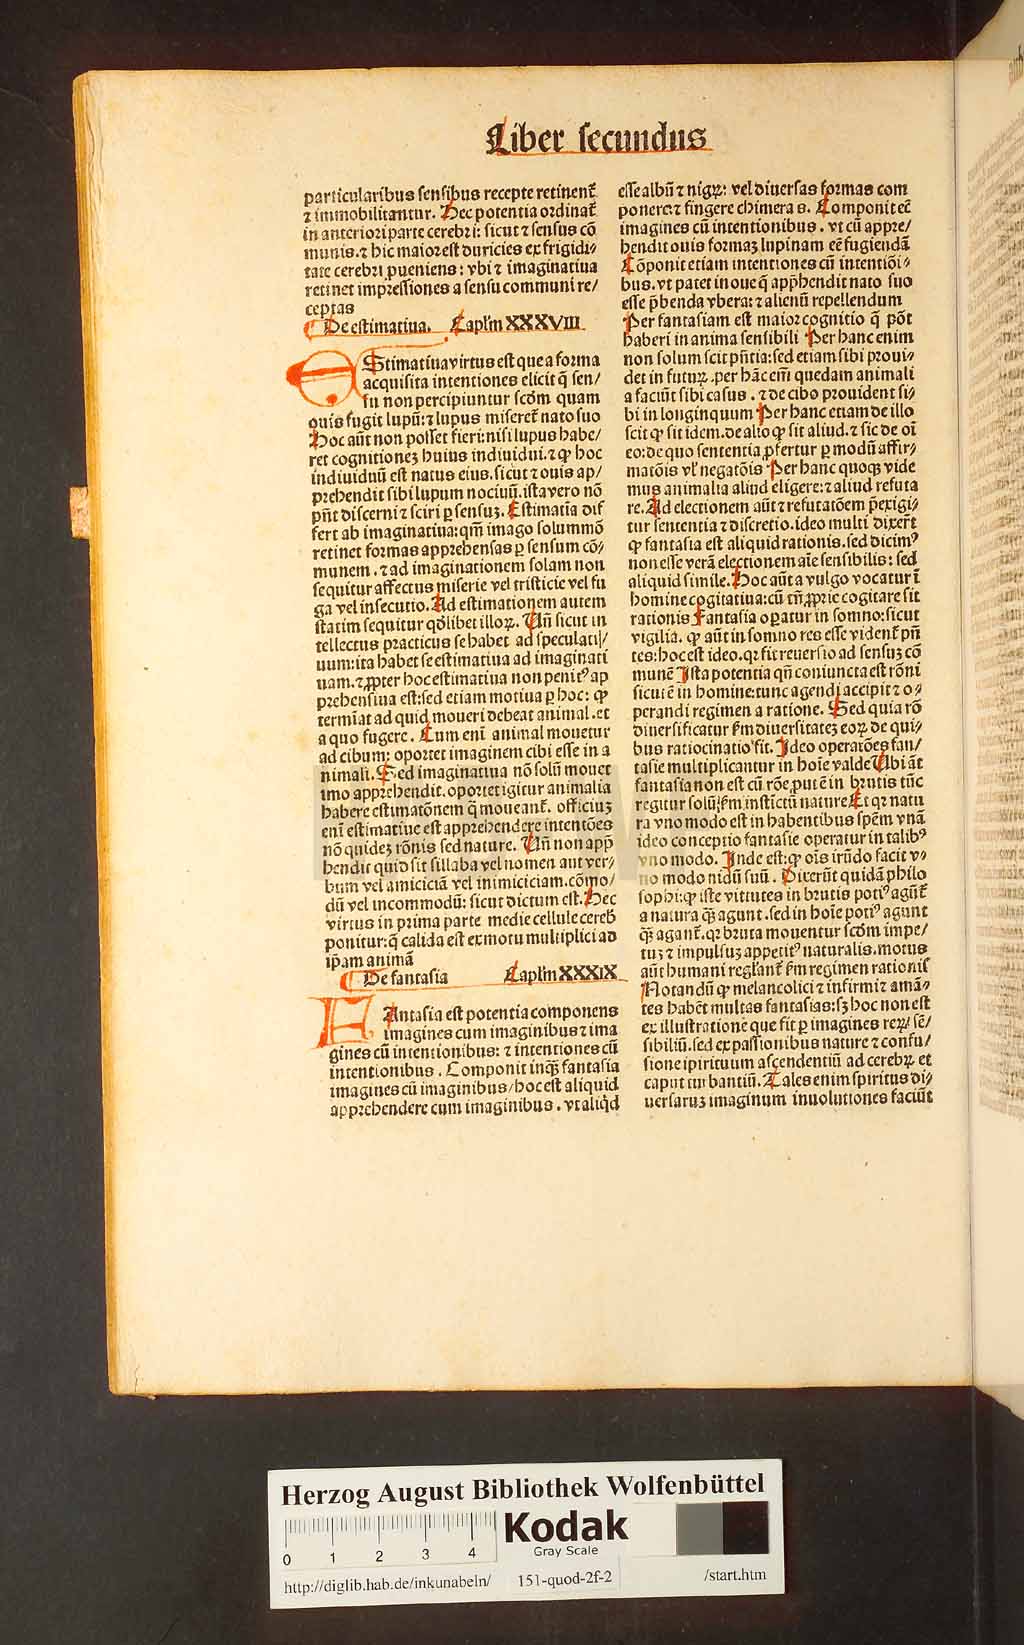 Liber secundus
particularibus sensibus recepte retinent̄
⁊ immobilitantur. Hec potentia ordinat̄
in anteriori parte cerebri: sicut ⁊ sensus cō
munis. ⁊ hic maior est duricies ex frigidi⸗
tate cerebri ꝓueniens: vbi ⁊ imaginatiua
retinet impressiones a sensu communi re/
ceptas
De estimatiua. Caplm̄ XXXVIII
EStimatiua virtus est que a forma
acquisita intentiones elicit q̄ sen/
su non percipiuntur scd̄m quam
ouis fugit lupū: ⁊ lupus miseret̄ nato suo
Hoc aūt non posset fieri: nisi lupus habe/
ret cognitionez huius indiuidui. ⁊ ꝙ hoc
indiuiduū est natus eius. sicut ⁊ ouis ap/
prehendit sibi lupum nociuū. ista vero nō
pn̄t discerni ⁊ sciri ꝑ sensuꝫ. Estimatia dif
fert ab imaginatiua: qm̄ imago solummō
retinet formas apprehensas ꝑ sensum cō/
munem. ⁊ ad imaginationem solam non
sequitur affectus miserie vel tristicie vel fu
ga vel insecutio. Ad estimationem autem
statim sequitur qd̄libet illoꝝ. Vn̄ sicut in
tellectus practicus se habet ad speculati/
uum: ita habet se estimatiua ad imaginati
uam. ⁊ ꝓpter hoc estimatiua non penitꝰ ap
prehensiua est: sed etiam motiua ꝑ hoc: ꝙ
termīat ad quid moueri debeat animal. et
a quo fugere. Cum enī animal mouetur
ad cibum: oportet imaginem cibi esse in a
nimali. Sed imaginatiua nō solū mouet
imo apprehendit. oportet igitur animalia
habere estimatōnem q̄ moueant̄. officiuꝫ
enī estimatiue est apprehendere intentōes
nō quidez rōnis sed nature. Vn̄ non app̄
hendit quid sit sillaba vel nomen aut ver/
bum vel amiciciā vel inimiciciam. cōmo/
dū vel incommodū: sicut dictum est. Hec
virtus in prima parte medie cellule cereb̄
ponitur: q̄ calida est ex motu multiplici ad
ip̄am animā
De fantasia Caplm̄ XXXIX
FAntasia est potentia componens
imagines cum imaginibus ⁊ ima
gines cū intentionibus: ⁊ intentiones cū
intentionibus. Componit inqꝫ fantasia
imagines cū imaginibus/hoc est aliquid
apprehendere cum imaginibus. vt aliqd̄
esse albū ⁊ nigꝝ: vel diuersas formas com
ponere: ⁊ fingere chimeras. Componit ec̄
imagines cū intentionibus. vt cū appre/
hendit ouis formaꝫ lupinam eē fugiendā
Cōponit etiam intentiones cū intentiōi⸗
bus. vt patet in oue q̄ app̄hendit nato suo
esse p̄benda vbera: ⁊ alienū repellendum
Per fantasiam est maior cognitio q̄ pōt
haberi in anima sensibili Per hanc enim
non solum scit pn̄tia: sed etiam sibi proui⸗
det in futuꝝ. per hāc em̄ quedam animali
a faciūt sibi casus. ⁊ de cibo prouident si⸗
bi in longinquum Per hanc etiam de illo
scit ꝙ sit idem. de alio ꝙ sit aliud. ⁊ sic de oī
eo: de quo sententia ꝓfertur ꝑ modū affir⸗
matōis vl̄ negatōis Per hanc quoqꝫ vide
mus animalia aliud eligere: ⁊ aliud refuta
re. Ad electionem aūt ⁊ refutatōem p̄exigi⸗
tur sententia ⁊ discretio. ideo multi dixer̄t
ꝙ fantasia est aliquid rationis. sed dicimꝰ
non esse verā electionem aīe sensibilis: sed
aliquid simile. Hoc aūt a vulgo vocatur ī
homine cogitatiua: cū tn̄ ꝓprie cogitare sit
rationis Fantasia oꝑatur in somno: sicut
vigilia. ꝙ aūt in somno res esse vident̄ pn̄
tes: hoc est ideo. qꝛ fit reuersio ad sensuꝫ cō
munē Ista potentia qn̄ coniuncta est rōni
sicut ē in homine: tunc agendi accipit ⁊ o⸗
perandi regimen a ratione. Sed quia rō
diuersificatur ẜm diuersitatez eoꝝ de qui⸗
bus ratiocinatio fit. Ideo operatōes fan/
tasie multiplicantur in hoīe valde Vbi āt
fantasia non est cū rōe, put ē in brutis tūc
regitur solū ẜm instictū nature Et qꝛ natu
ra vno modo est in habentibus spēm vnā
ideo conceptio fantasie operatur in talibꝰ
vno modo. Inde est: ꝙ oīs irūdo facit v⸗
no modo nidū suū. Dixerūt quidā philo
sophi: ꝙ iste virtutes in brutis potiꝰ agūt̄
a natura qꝫ agunt. sed in hoīe potiꝰ agunt
qꝫ agant̄. qꝛ bruta mouentur scd̄m impe/
tuꝫ ⁊ impulsuꝫ appetitꝰ naturalis. motus
aūt humani regłant̄ ẜm regimen rationis
Notandū ꝙ melancolici ⁊ infirmi ⁊ amā⸗
tes habēt multas fantasias: sꝫ hoc non est
ex illustratione que fit ꝑ imagines reꝝ sē/
sibiliū. sed ex passionibus nature ⁊ confu/
sione ipirituum ascendentiū ad cerebꝝ et
caput turbantiū. Tales enim spiritus di⸗
uersaruꝫ imaginum inuolutiones faciūt
Herzog August Bibliothek Wolfenbüttel
0 1 2 3 4
Kodak
Gray Scale
http://diglib.hab.de/inkunabeln/ 151-quod-2f-2 /start.htm